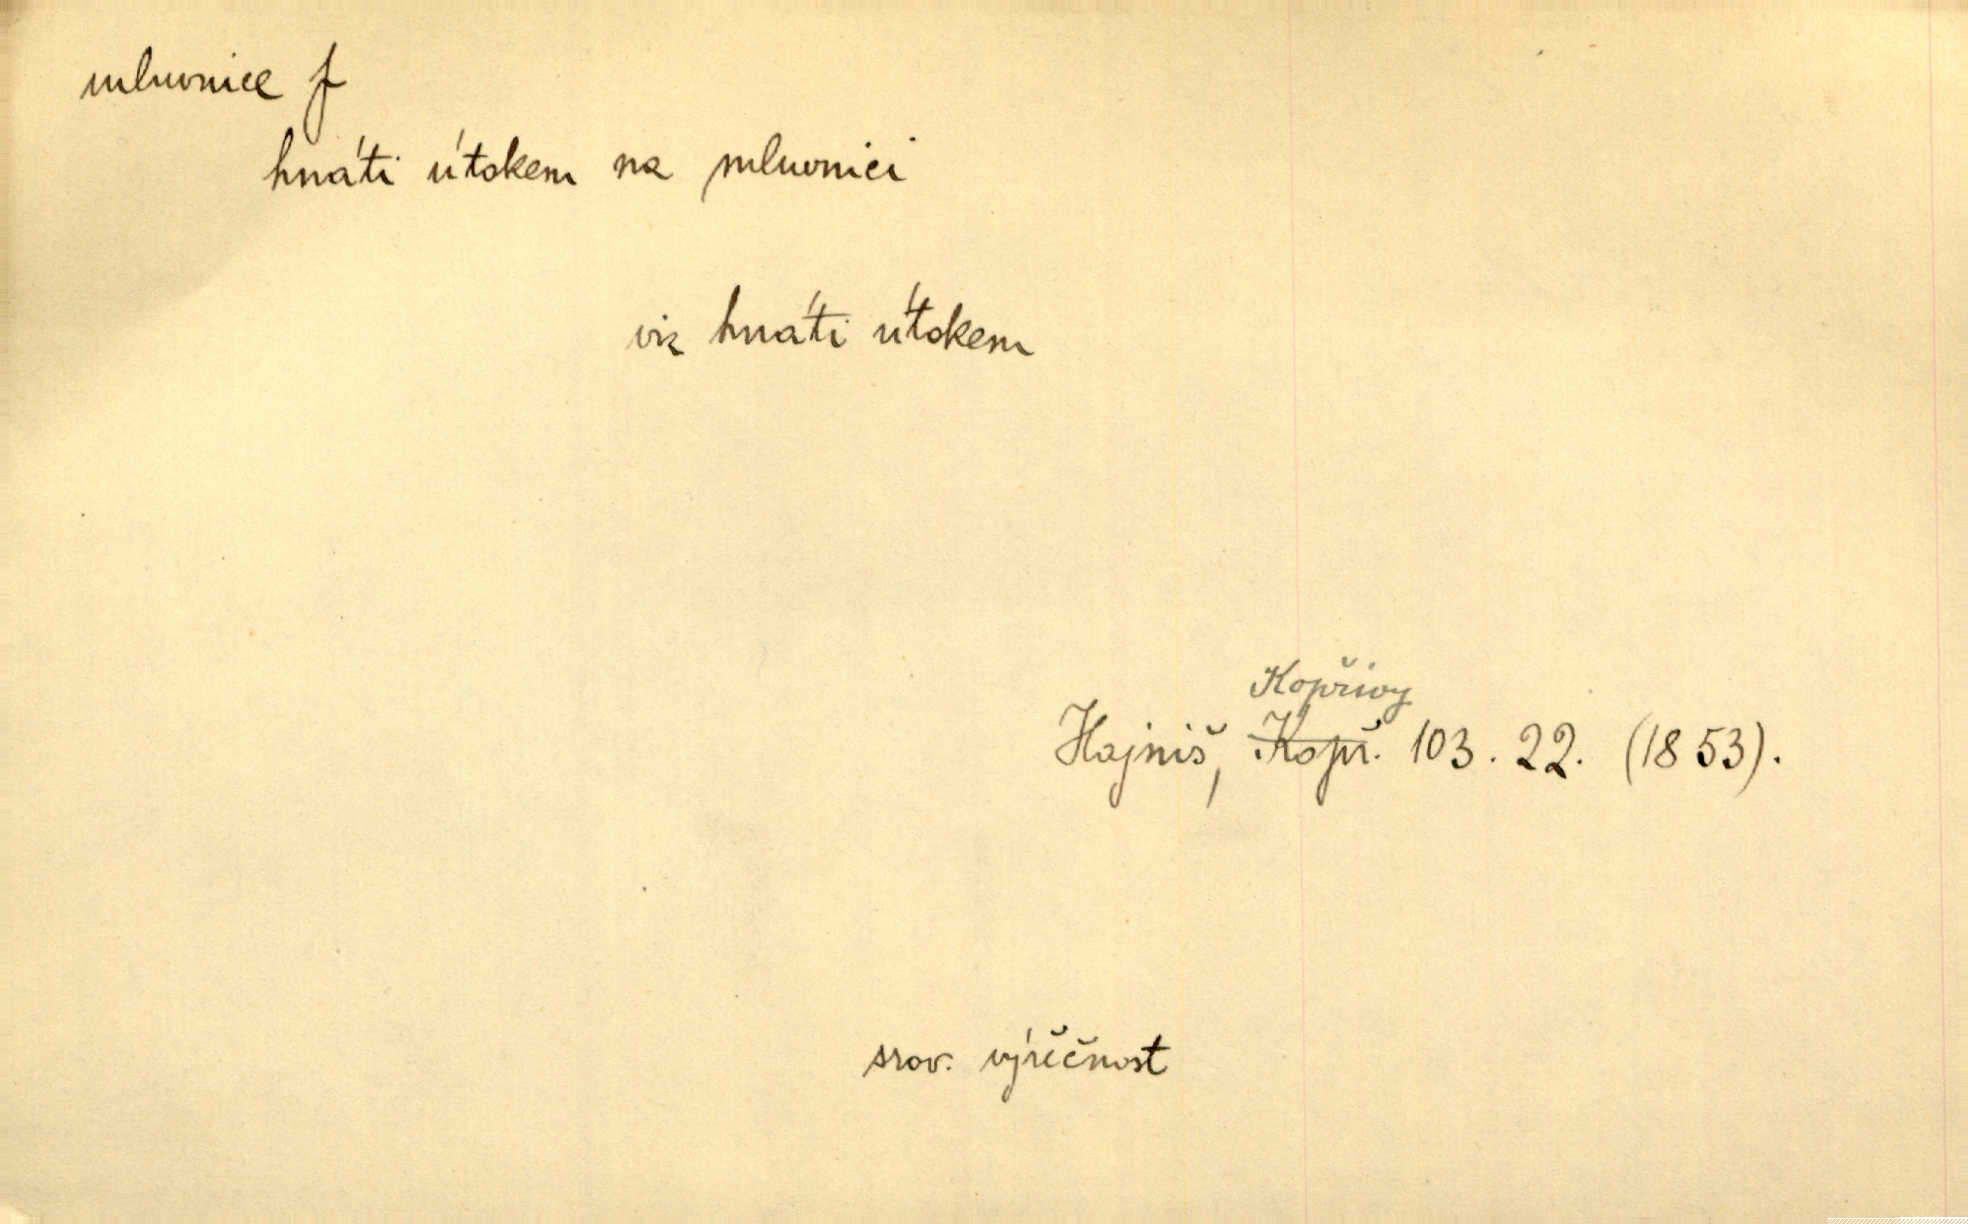 mluvnice f
hnáti útokem na mluvnici
viz hnáti útokem
Kopřivy
Hajniš, Kopř. 103. 22. (1853).
srov. výřečnost